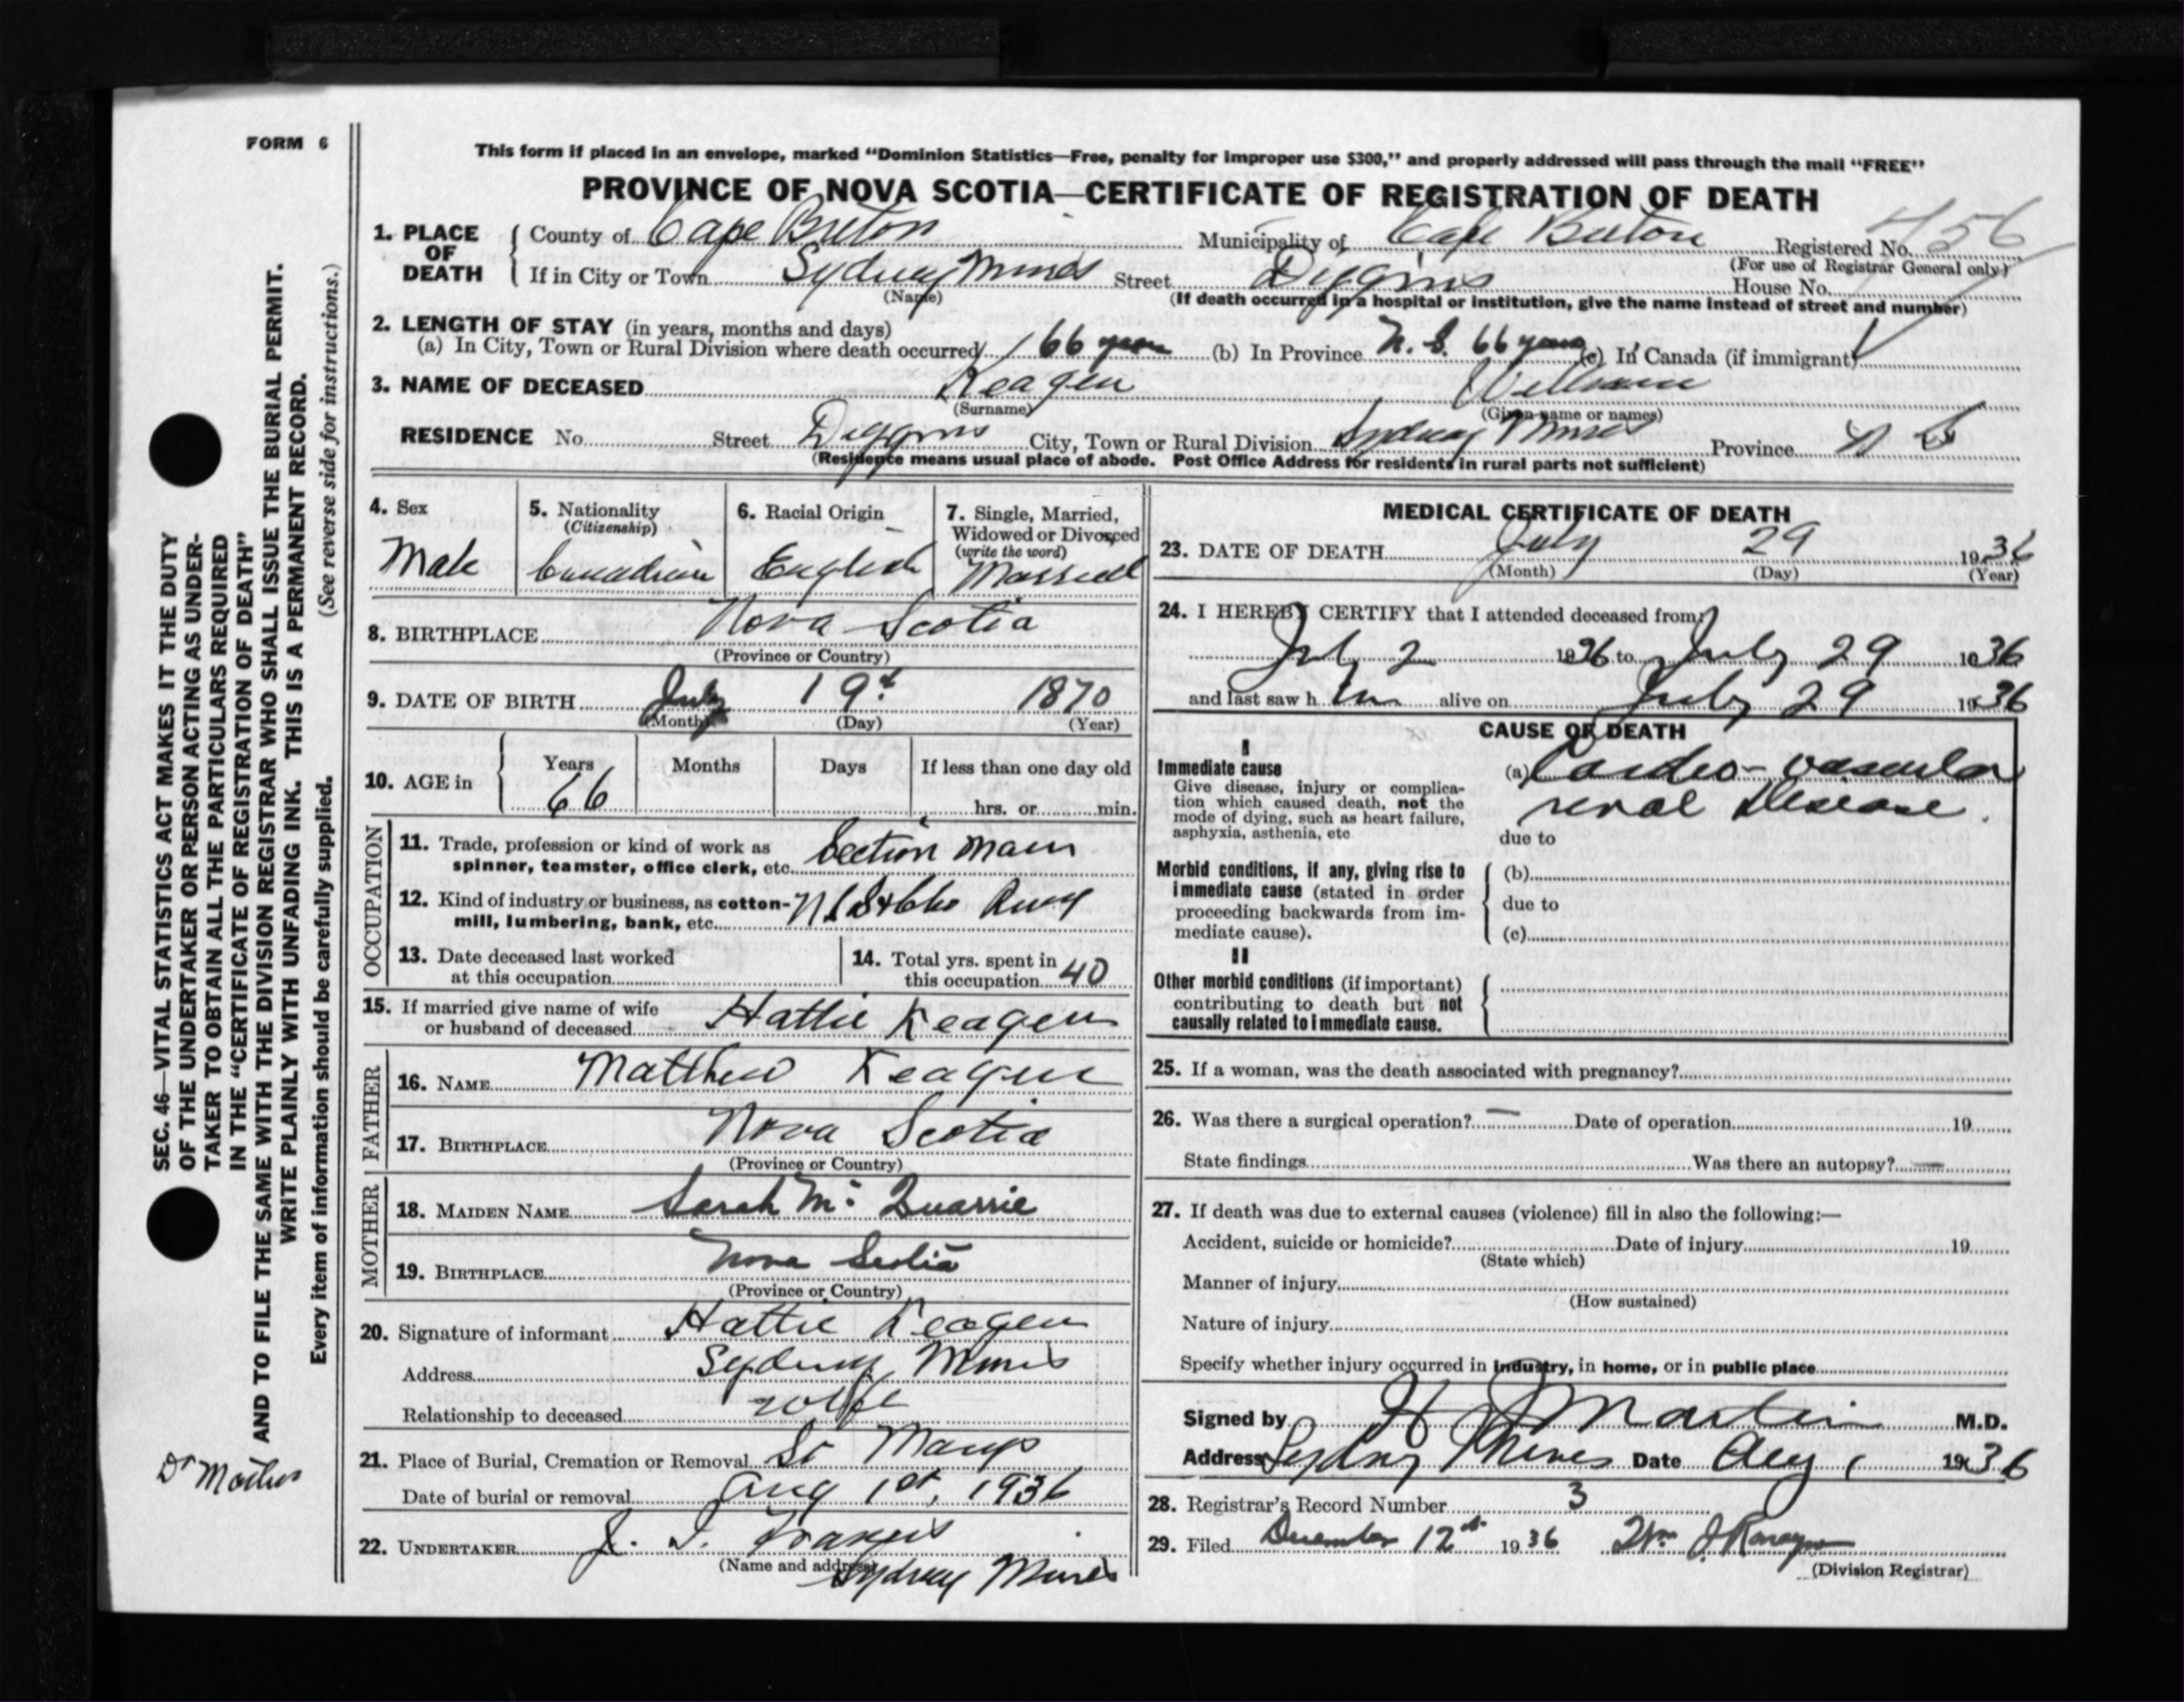 FORM 6
This form if placed in an envelope, marked "Dominion Statistics—Free, penalty for improper use $300," and properly addressed will pass through the mail "FREE"
PROVINCE OF NOVA SCOTIA—CERTIFICATE OF REGISTRATION OF DEATH
1. PLACE OF DEATH County of Cape Breton Municipality of Cape Breton Registered No. 456
(For use of Registrar General only)
If in City or Town Sydney Mines Street Diggins House No.
(Name) (If death occurred in a hospital or institution, give the name instead of street and number)
2. LENGTH OF STAY (in years, months and days)
(a) In City, Town or Rural Division where death occurred 66 years (b) In Province N. S. 66 years (c) In Canada (if immigrant)
3. NAME OF DECEASED Keagen William
(Surname) (Given name or names)
RESIDENCE No. Street Diggins City, Town or Rural Division Sydney Mines Province N S
(Residence means usual place of abode. Post Office Address for residents in rural parts not sufficient)
4. Sex
Male
5. Nationality
(Citizenship)
Canadian
6. Racial Origin
English
7. Single, Married,
Widowed or Divorced
(write the word)
Married
8. BIRTHPLACE Nova Scotia
(Province or Country)
9. DATE OF BIRTH July 19t 1870
(Month) (Day) (Year)
10. AGE in Years Months Days If less than one day old
66 hrs. or min.
OCCUPATION
11. Trade, profession or kind of work as
spinner, teamster, office clerk, etc. Section Man
12. Kind of industry or business, as cotton-
mill, lumbering, bank, etc.
13. Date deceased last worked
at this occupation
14. Total yrs. spent in
this occupation 40
15. If married give name of wife
or husband of deceased Hattie Keagen
FATHER
16. NAME Matthew Keagen
17. BIRTHPLACE Nova Scotia
(Province or Country)
MOTHER
18. MAIDEN NAME Sarah Mc Quarrie
19. BIRTHPLACE Nova Scotia
(Province or Country)
20. Signature of informant Hattie Keagen
Address Sydney Mines
Relationship to deceased wife
21. Place of Burial, Cremation or Removal St Marys
Date of burial or removal Aug 1st, 1936
22. UNDERTAKER J. T. Francis
(Name and address)
Sydney Mines
MEDICAL CERTIFICATE OF DEATH
23. DATE OF DEATH July 29 1936
(Month) (Day) (Year)
24. I HEREBY CERTIFY that I attended deceased from:
July 2 1936 to July 29 1936
and last saw h im alive on July 29 1936
CAUSE OF DEATH
I
Immediate cause
Give disease, injury or complica-
tion which caused death, not the
mode of dying, such as heart failure,
asphyxia, asthenia, etc
(a) Cardio-vascular
renal Disease.
due to
Morbid conditions, if any, giving rise to
immediate cause (stated in order
proceeding backwards from im-
mediate cause).
(b)
due to
(c)
II
Other morbid conditions (if important)
contributing to death but not
causally related to immediate cause.
25. If a woman, was the death associated with pregnancy?
26. Was there a surgical operation? — Date of operation 19
State findings Was there an autopsy? —
27. If death was due to external causes (violence) fill in also the following:—
Accident, suicide or homicide? Date of injury 19
(State which)
Manner of injury
(How sustained)
Nature of injury
Specify whether injury occurred in industry, in home, or in public place
Signed by Martin M.D.
Address Sydney Mines Date Aug 1 1936
28. Registrar's Record Number 3
29. Filed December 12th 1936 Wm
(Division Registrar)
SEC. 46—VITAL STATISTICS ACT MAKES IT THE DUTY
OF THE UNDERTAKER OR PERSON ACTING AS UNDER-
TAKER TO OBTAIN ALL THE PARTICULARS REQUIRED
IN THE "CERTIFICATE OF REGISTRATION OF DEATH"
AND TO FILE THE SAME WITH THE DIVISION REGISTRAR WHO SHALL ISSUE THE BURIAL PERMIT.
WRITE PLAINLY WITH UNFADING INK. THIS IS A PERMANENT RECORD.
Every item of information should be carefully supplied. (See reverse side for instructions.)
Dr Martin